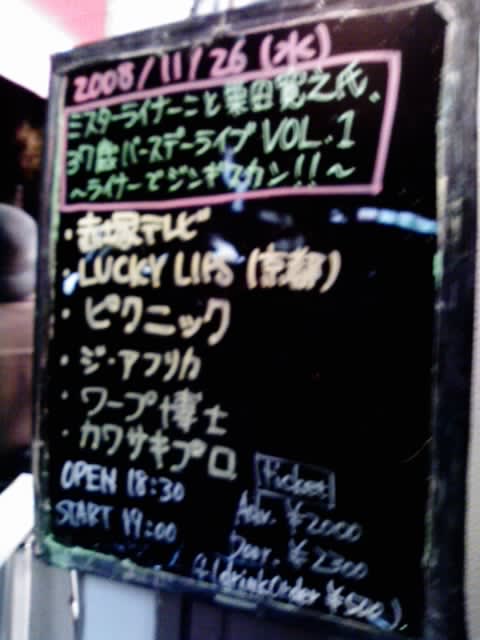 2008/11/26 (水)
ミスターライナーこと栗田寛之氏、
37歳バースデーライブVOL.1
～ライナーでジンギスカン!!～
・赤塚テレビ
・LUCKY LIPS (京都)
・ピクニック
・ジ・アフリカ
・ワープ博士
・カワサキプロ
OPEN 18:30
START 19:00
Ticket
Adv. ¥2000
Door. ¥2300
(drink order ¥500)